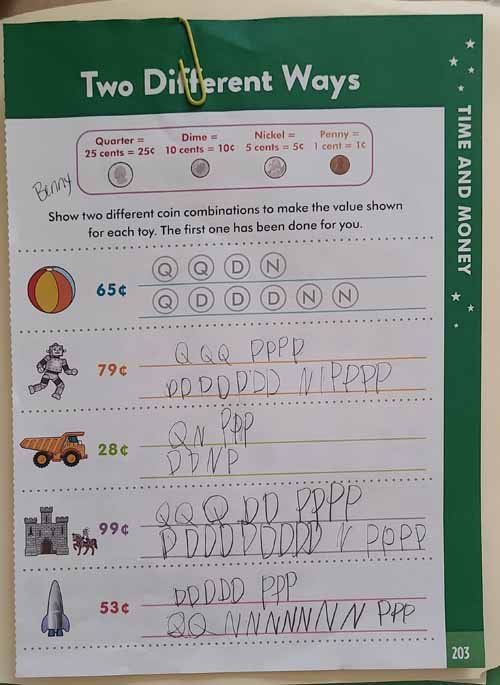 Two Different Ways
Quarter = Dime = Nickel = Penny =
25 cents = 25¢ 10 cents = 10¢ 5 cents = 5¢ 1 cent = 1¢
Benny
Show two different coin combinations to make the value shown
for each toy. The first one has been done for you.
TIME AND MONEY
65¢
Q Q D N
Q D D D N N
79¢
Q Q Q P P P P
D D D D D D D N P P P P
28¢
Q N P P P
D D N P
99¢
Q Q Q D D P P P P
D D D D D D D D D N P P P P
53¢
D D D D D P P P
Q Q N N N N N N N P P P
203